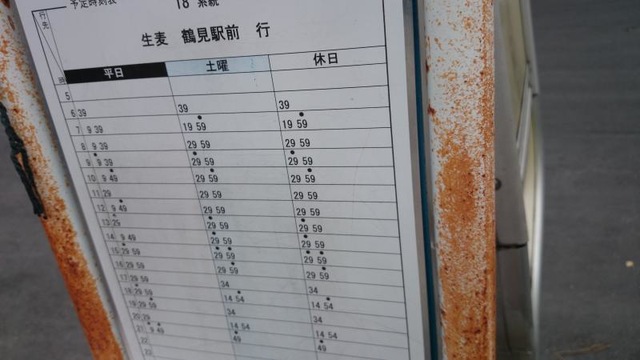 予定時刻表 18 系統
行先 生麦 鶴見駅前 行
時 平日 土曜 休日
5
6 39 39 39
7 9 39 19 59 19 59
8 9 39 29 59 29 59
9 9 39 29 59 29 59
10 9 49 29 59 29 59
11 29 29 59 29 59
12 9 49 29 59 29 59
13 29 29 59 29 59
14 9 49 29 59 29 59
15 29 59 29 59 29 59
16 29 59 29 59 29 59
17 29 59 34 34
18 29 59 14 54 14 54
19 29 59 34 34
20 29 59 14 54 14 54
21 9 49 49 49
22
23